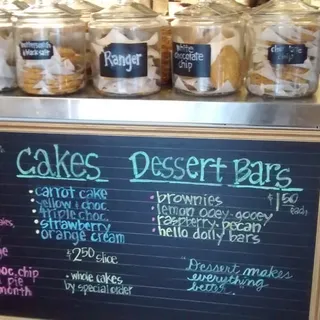 butterscotch
& black salt
Ranger
white
chocolate
chip
chocolate
chip
Cakes
• carrot cake
• yellow & choc
• triple choc.
• strawberry
orange cream
$2.50 slice
• whole cakes
by special order
Dessert Bars
• brownies
• lemon ooey-gooey
• raspberry-pecan
• hello dolly bars
$1.50
each
"Dessert makes
everything
better"
akes,
choc. chip
pie
month